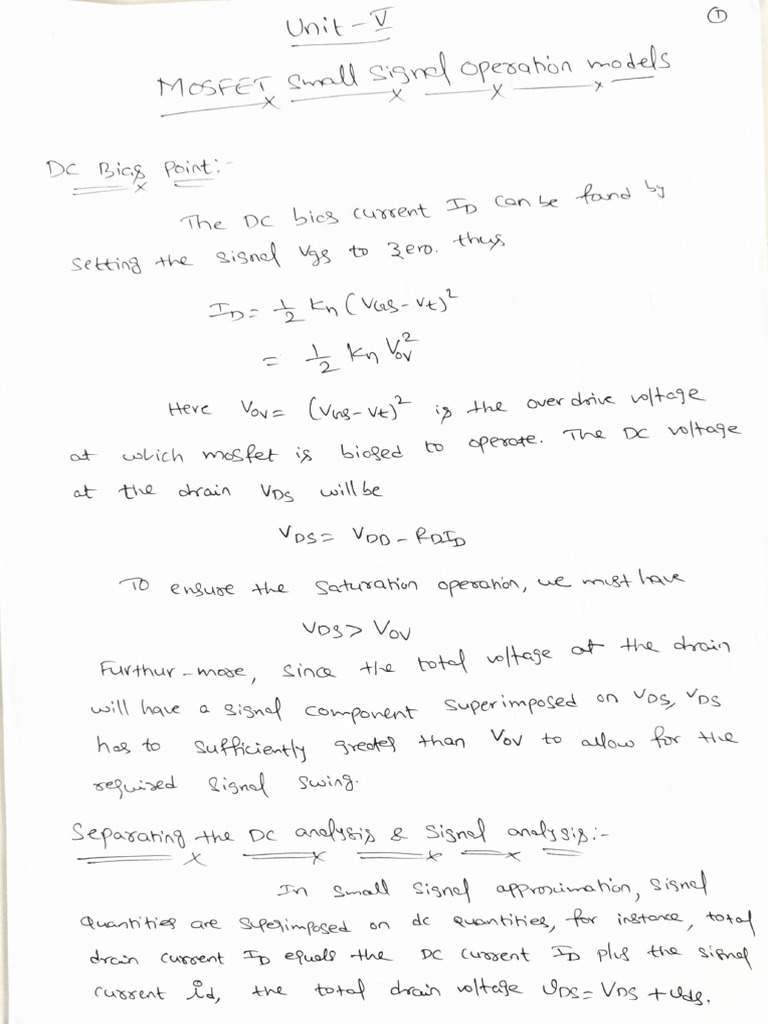 ①
Unit - V
MOSFET small signal operation models
DC Bias Point:-
The DC bias current ID can be fand by
setting the signal Vgs to zero. thus
ID = 1/2 Kn (VGS - Vt)²
= 1/2 Kn Vov²
Here Vov = (VGS - Vt)² is the overdrive voltage
at which mosfet is biased to operate. The DC voltage
at the drain VDS will be
VDS = VDD - RDID
To ensure the saturation operation, we must have
VDS > Vov
Furthur-more, since the total voltage at the drain
will have a signal component superimposed on VDS, VDS
has to sufficiently greater than Vov to allow for the
required signal swing.
Separating the DC analysis & Signal analysis:-
In small signal approximation, signal
quantities are superimposed on dc quantities, for instance, total
drain current ID equals the DC current ID plus the signal
current id, the total drain voltage vDS = VDS + vds.